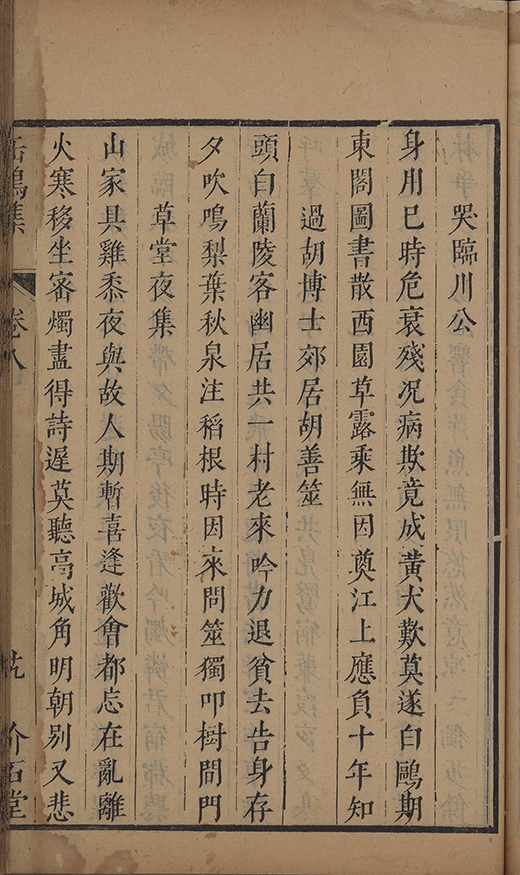 哭臨川公
身用已時危衰殘况病欺竟成黄犬歎莫遂白鷗期
東閣圖書散西園草露乘無因奠江上應負十年知
過胡博士郊居胡善筮
頭白蘭陵客幽居共一村老來吟力退貧去告身存
夕吹鳴梨葉秋泉注稻根時因來問筮獨叩樹間門
草堂夜集
山家具雞黍夜與故人期暫喜逢歡會都忘在亂離
火寒移坐密燭盡得詩遲莫聽高城角明朝别又悲
缶鳴集 卷八 介石堂